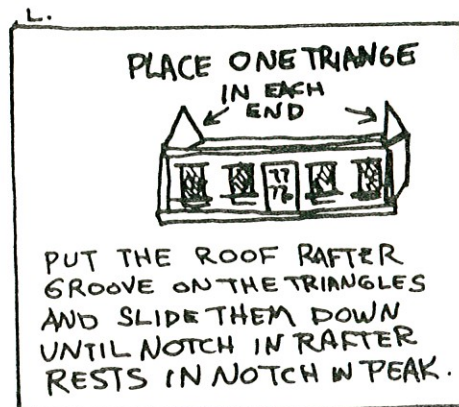 L.
PLACE ONE TRIANGE
IN EACH
END
PUT THE ROOF RAFTER
GROOVE ON THE TRIANGLES
AND SLIDE THEM DOWN
UNTIL NOTCH IN RAFTER
RESTS IN NOTCH IN PEAK.